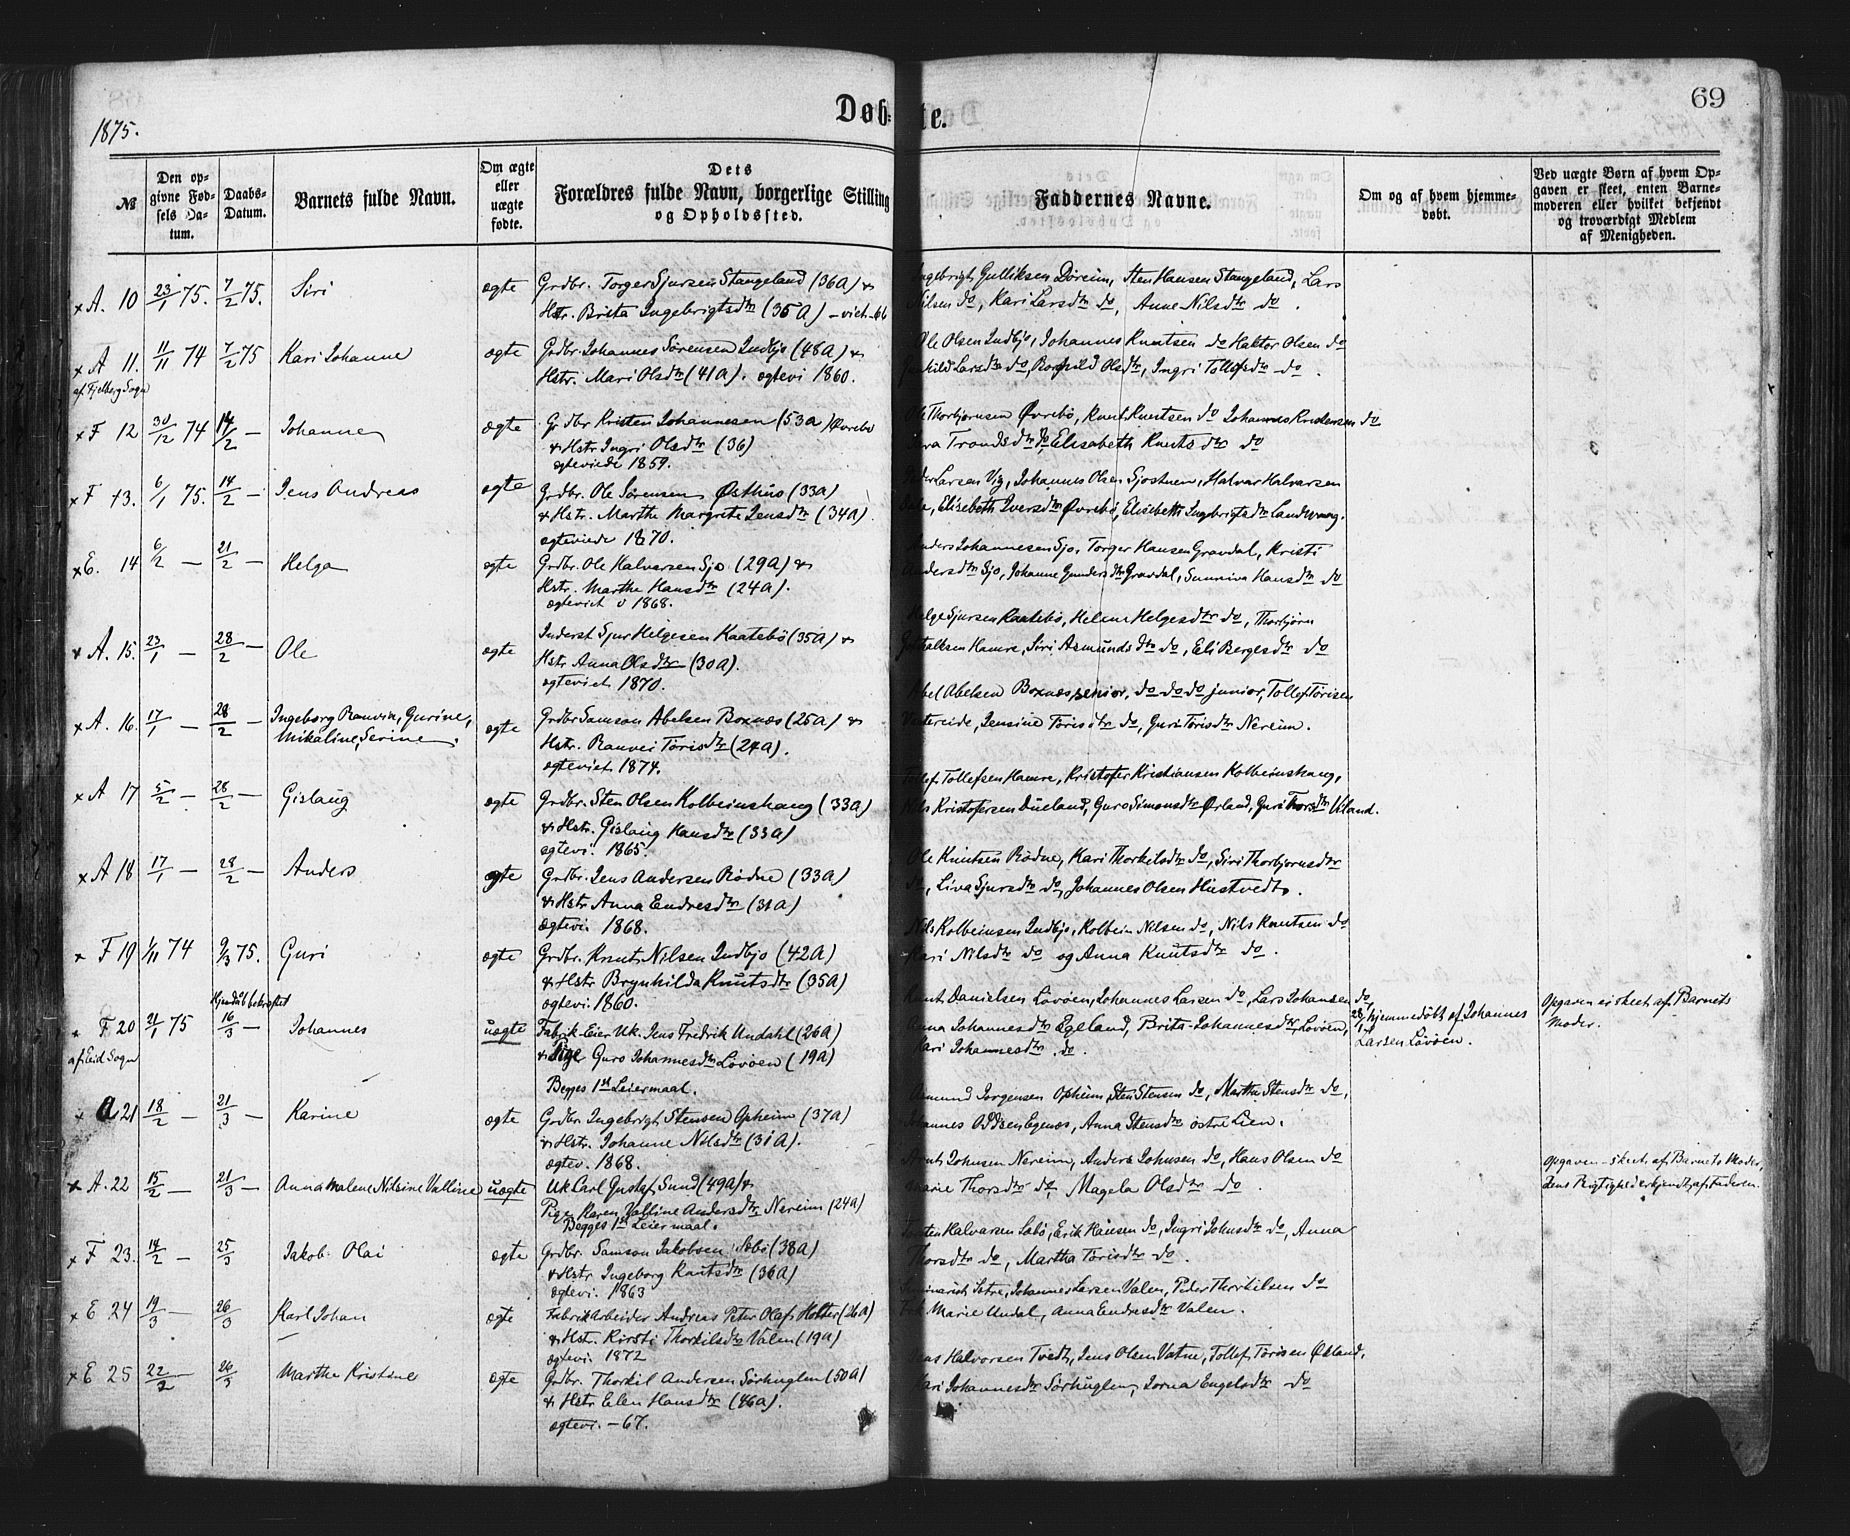 Døb-te.
69
1875.
№
Den op-
givne Fød-
sels Da-
tum.
Daabs-
Datum.
Barnets fulde Navn.
Om ægte
eller
uægte
fødte.
Dets
Forældres fulde Navn, borgerlige Stilling
og Opholdssted.
Faddernes Navne.
Om og af hvem hjemme-
døbt.
Ved uægte Børn af hvem Op-
gaven er skeet, enten Barne-
moderen eller hvilket bekjendt
og troværdigt Medlem
af Menigheden.
x A. 10 23/1 75. 7/2 75. Siri ægte Grdbr. Torger Sjursen Stangeland (36A) &
Hstr. Brita Ingebrigtsdtr (35A) – viet – 66
Ingebrigt Gulliksen Døreim, Sten Hansen Stangeland, Lars
Nilsen do, Kari Larsdtr do, Anne Nilsdtr do.
x A 11. 11/11 74 7/2 75 Kari Johanne ægte Grdbr. Johannes Sørensen Indbjo (48A) &
af Fjelberg Sogn
Hstr. Mari Olsdtr (41A). ægtevi 1860.
Ole Olsen Indbjo, Johannes Knutsen do Haktor Olsen do
Larsdtr do, Olsdtr, Ingri Tollefsdtr do.
x F 12 30/12 74 14/2 – Johanne ægte Grdbr Kristen Johannesen (53A) Øvrebø
& Hstr Ingri Olsdtr (36)
ægteviede 1859.
Ole Thorbjørnsen Øvrebø, Knut Knutsen do Johannes Knudensen do
Trondsdtr do, Elisabeth Knutsdtr do
x F 13. 6/1 75. 14/2 – Jens Andreas ægte Grdbr. Ole Sørensen Østhus (33A)
& Hstr. Marthe Margrete Jensdtr (34A).
ægteviede 1870.
Peder Larsen Vig, Johannes Olsen Halvar Halvarsen
Elisebeth Iversdtr Øvrebø, Elisebeth Ingebrigtsdtr Landvaag.
x E. 14 6/2 – 21/2 – Helga ægte Grdbr. Ole Halvarsen Sjo (29A) &
Hstr. Marthe Hansdtr (24A).
ægteviet 1868.
Anders Johannesen Sjo, Torger Hansen Gravdal, Kristi
Andersdtr Sjo, Johanne Gundersdtr Gravdal, Sunniva Hansdtr do
x A. 15. 23/1 – 28/2 – Ole ægte Inderst Sjur Helgesen Kaatebø (35A) &
Hstr Anna Olsdtr (30A).
ægteviet 1870.
Helge Sjursen Kaatebø, Helene Helgesdtr do, Thorbjørn
Hamre, Siri Asmundsdtr do, Eli Bergesdtr do
x A. 16. 17/1 – 28/2 – Ingeborg Ranvei, Gurine,
Mikaline, Serine. ægte Grdbr Samson Abelsen Boxnæs (25A) &
Hstr. Ranvei Tørisdtr (24A).
ægteviet 1874.
Abel Abelsen Boxnæs senior, do do do junior, Tollef Tørisen
Vestereide, Jensine Tørisdtr do, Guri Tørisdtr Nereim.
x A 17 5/2 – 28/2 – Gislaug ægte Grdbr. Sten Olsen Kolbeinshaug (33A)
& Hstr. Gislaug Hansdtr (33A)
ægtevi. 1865.
Tollef Tollefsen Hamre, Kristofer Kristiansen Kolbeinshaug,
Nils Kristofersen Dueland, Guro Simonsdtr Ørland, Guri Thorsdtr
x A 18 17/1 – 28/2 – Anders ægte Grdbr. Jens Andersen Rødne (33A)
& Hstr Anna Endresdtr (31A)
ægtevi. 1868.
Ole Knutsen Rødne, Kari Thorkilsdtr do, Siri Thorbjørnsdtr
do, Liva Sjursdtr do, Johannes Olsen Hustvedt.
x F 19 1/11 74 9/3 75. Guri ægte Grdbr. Knut Nilsen Indbjo (42A)
& Hstr Brynhilda Knutsdtr (35A)
ægtevi. 1860.
Nils Kolbeinsen Indbjo, Kolbein Nilsen do, Nils Knutsen do
Kari Nilsdtr do og Anna Knutsdtr do.
Hjemdaab bekræftet
x F 20 21/1 75 16/3 – Johannes uægte Fabrik Eier Uk. Jens Fredrik Undahl (26A)
af Eid Sogn
& Pige Guro Johannesdtr Løvøen (19A)
Begges 1st Leiermaal.
Knut Danielsen Løvøen, Johannes Larsen do, Lars Johansen do
Anna Johannesdtr Egeland, Brita Johannesdtr Løvøen,
Kari Johannesdtr do.
28/1 hjemmedøbt af Johannes
Larsen Løvøen.
Opgaven er skeet af Barnets
Moder.
x A 21 18/2 – 21/3 – Karine ægte Grdbr Ingebrigt Stensen Opheim (37A)
& Hstr. Johanne Nilsdtr (31A).
ægtev. 1868.
Asmund Jørgensen Opheim, Sten Stensen do, Martha Stensdtr do,
Johannes Oddsen Egenæs, Anna Stensdtr østre Lien.
x A. 22 15/2 – 21/3 – Anna Malene Nilsine Valline uægte Uk Carl Gustaf Sund (49A) &
Pige Karen Valline Andersdtr Nereim (24A)
Begges 1st Leiermaal.
Johnsen Nereim, Anders Johnsen do, Hans Olsen do
Marie Thorsdtr do Magela Olsdtr do.
Opgaven skeet af Barnets Moder,
dens Rigtighed erkjendt af Faderen.
x F 23. 14/2 – 25/3 Jakob Olai ægte Grdbr. Samson Jakobsen Sæbø (38A)
& Hstr Ingeborg Knutsdtr (36A)
ægtevi. 1863
Torsten Halvarsen Sæbø, Erik Hansen do, Ingri Johnsdtr do, Anna
Thorsdtr do, Martha Tørisdtr do.
x E 24 19/3 – 26/3 Karl Johan ægte Fabrikarbeider Andreas Peter Olafs Holter (26A)
& Hstr. Kirsti Thorkilsdtr Valen (19A)
ægtevi. 1872
Seminarist Sætre, Johannes Larsen Valen, Peder Thorkilsen do
Frk Marie Undal, Anna Endresdtr Valen.
x E 25 22/2 – 26/3 Marthe Kristine ægte Grdbr. Thorkil Andersen Sørhuglen (50A)
& Hstr Elen Hansdtr (46A).
ægtevi. – 67.
Jens Halvorsen Tvedt, Jens Olsen Vatne, Tollef Tørisen Økland,
Kari Johannesdtr Sørhuglen, Jorna Engelsdtr do